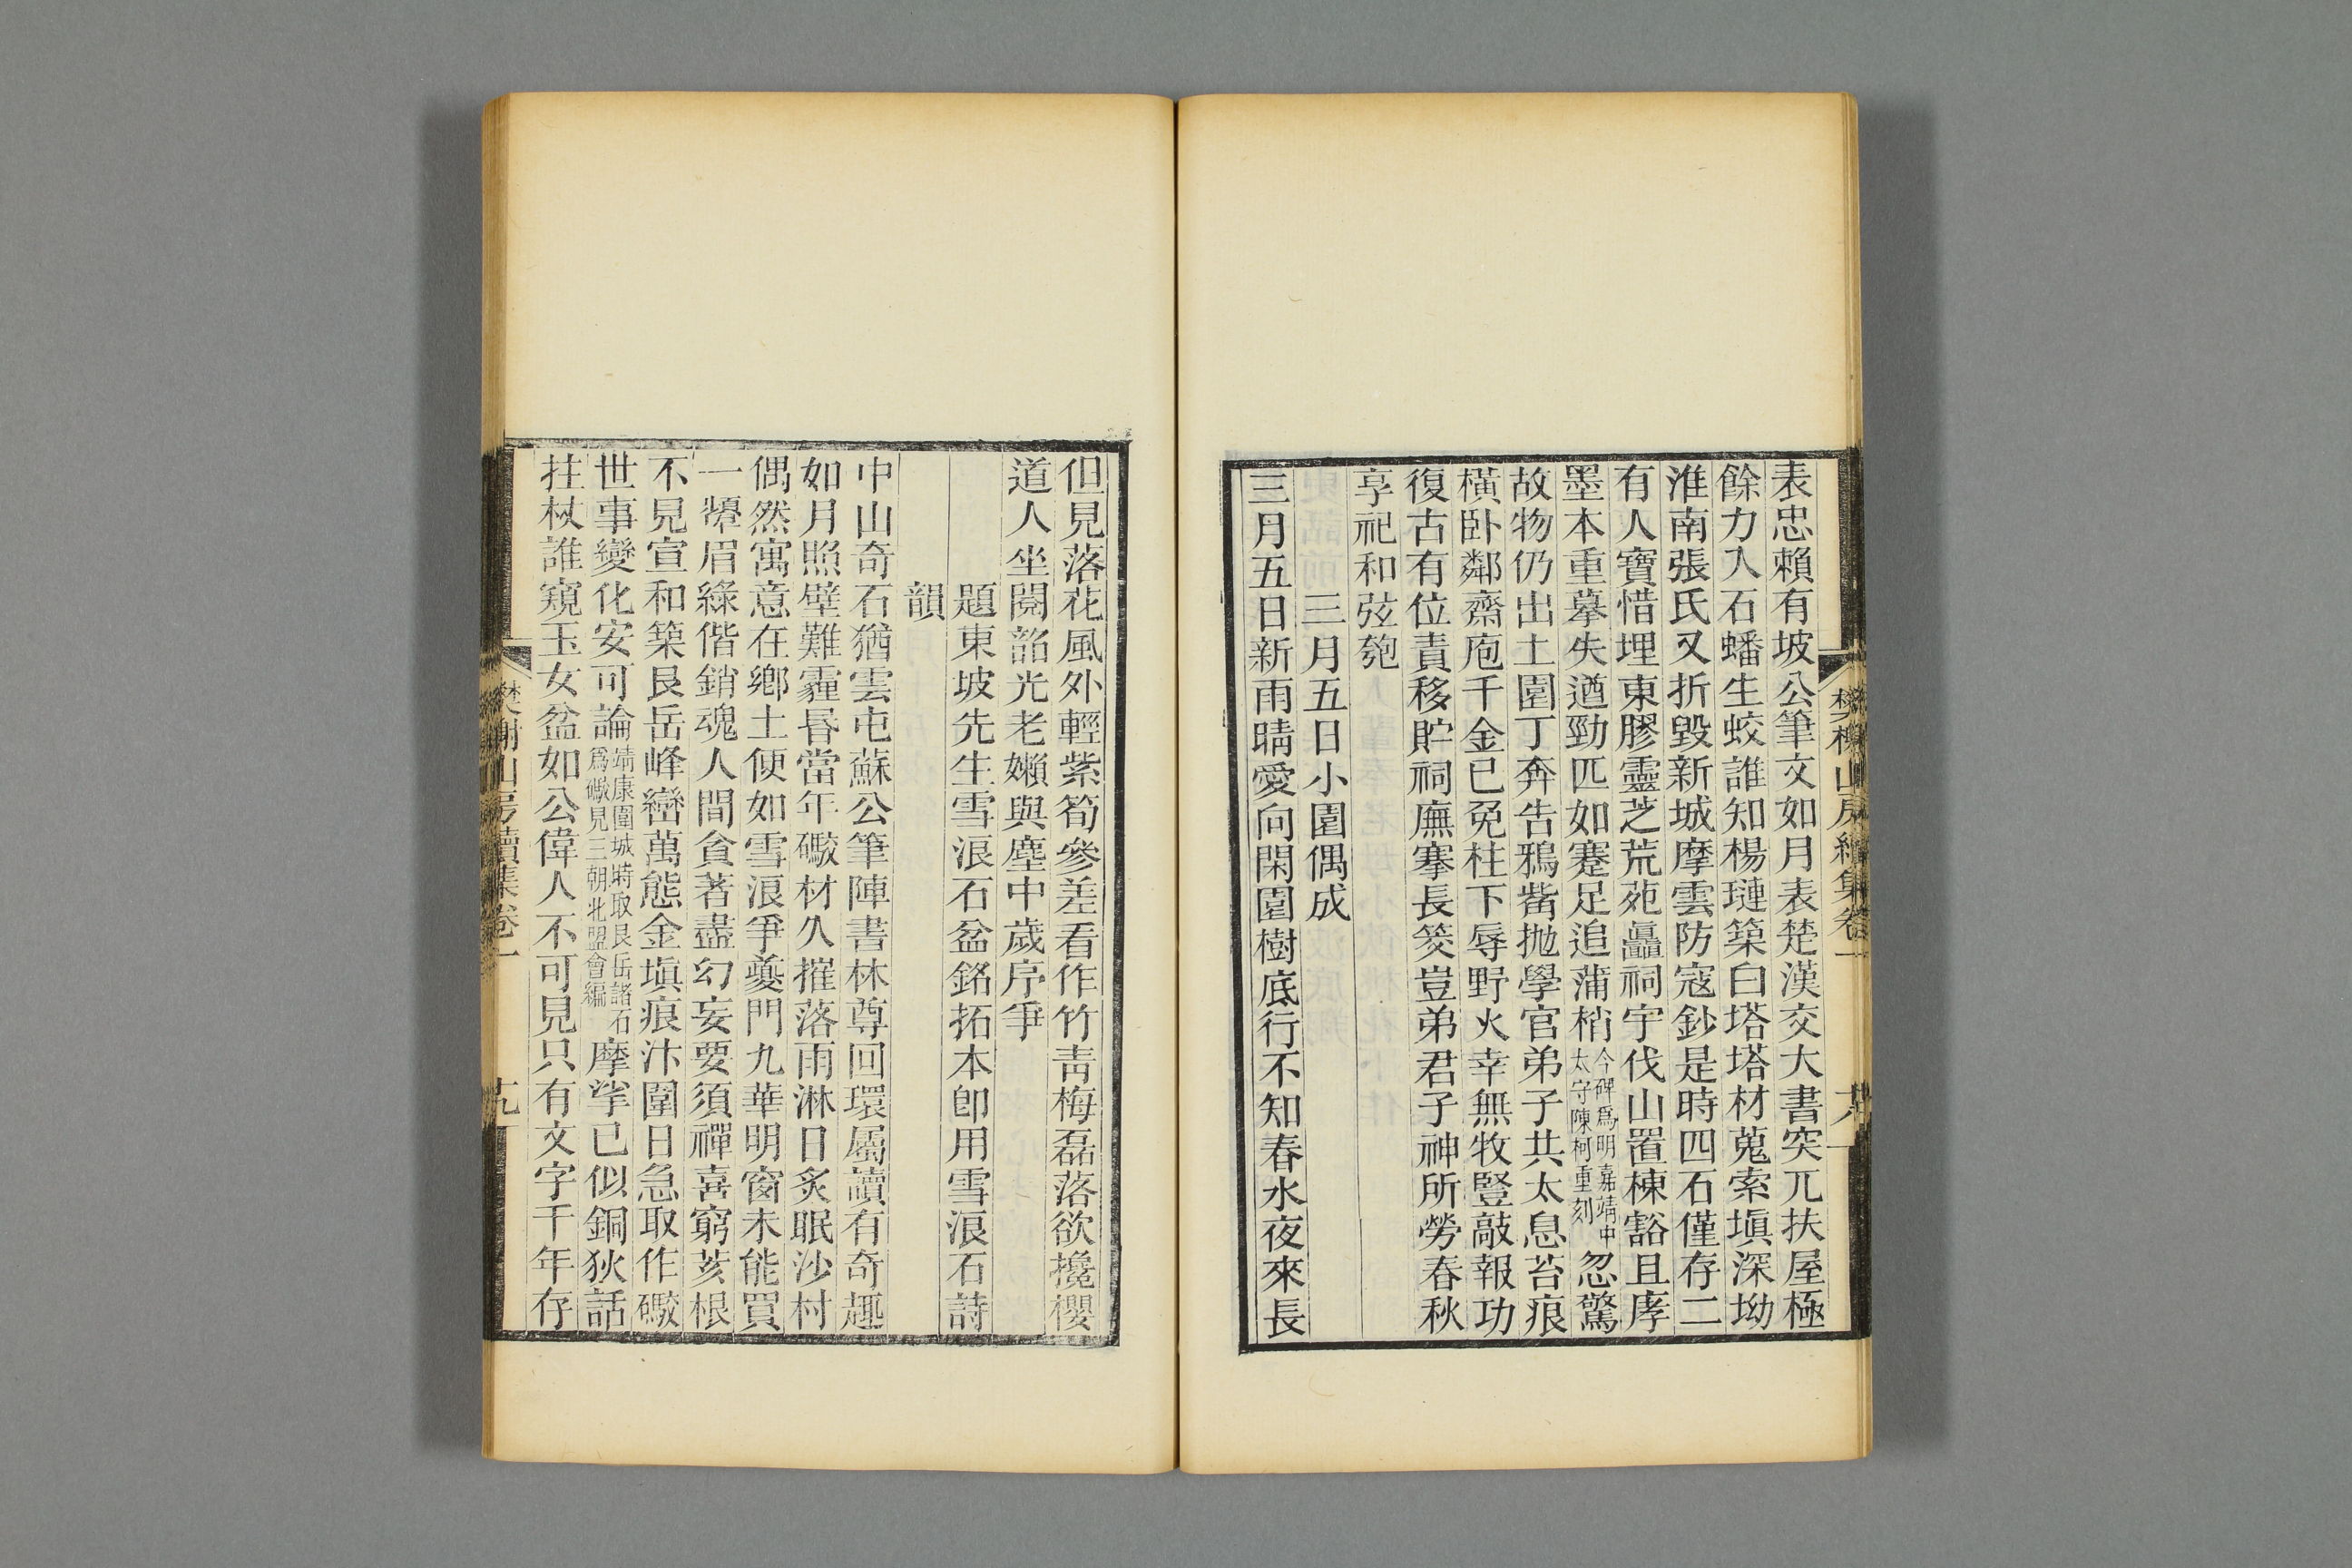 樊榭山房續集卷一 十八
表忠賴有坡公筆文如月表楚漢交大書突兀扶屋極
餘力入石蟠生蛟誰知楊璉築白塔塔材蒐索塡深坳
淮南張氏又折毀新城摩雲防寇鈔是時四石僅存二
有人寶惜埋東膠靈芝荒苑矗祠宇伐山置棟豁且庨
墨本重摹失遒勁匹如蹇足追蒲梢今碑爲明嘉靖中太守陳柯重刻忽驚
故物仍出土園丁奔告鴉觜抛學官弟子共太息苔痕
橫卧鄰齋庖千金已免柱下辱野火幸無牧豎敲報功
復古有位責移貯祠廡搴長筊豈弟君子神所勞春秋
享祀和弦匏
三月五日小園偶成
三月五日新雨晴愛向閑園樹底行不知春水夜來長
但見落花風外輕紫筍參差看作竹靑梅磊落欲攙櫻
道人坐閱韶光老嬾與塵中歲序爭
題東坡先生雪浪石盆銘拓本卽用雪浪石詩
韻
中山奇石猶雲屯蘇公筆陣書林尊回環屬讀有奇趣
如月照壁難霾昬當年礮材久摧落雨淋日炙眠沙村
偶然寓意在鄕土便如雪浪爭夔門九華明窗未能買
一顰眉綠偕銷魂人間貪著盡幻妄要須禪喜窮荄根
不見宣和築艮岳峰巒萬態金塡痕汴圍日急取作礮
世事變化安可論靖康圍城時取艮岳諸石爲礮見三朝北盟會編摩挲已似銅狄話
拄杖誰窺玉女盆如公偉人不可見只有文字千年存
樊榭山房續集卷一 十九